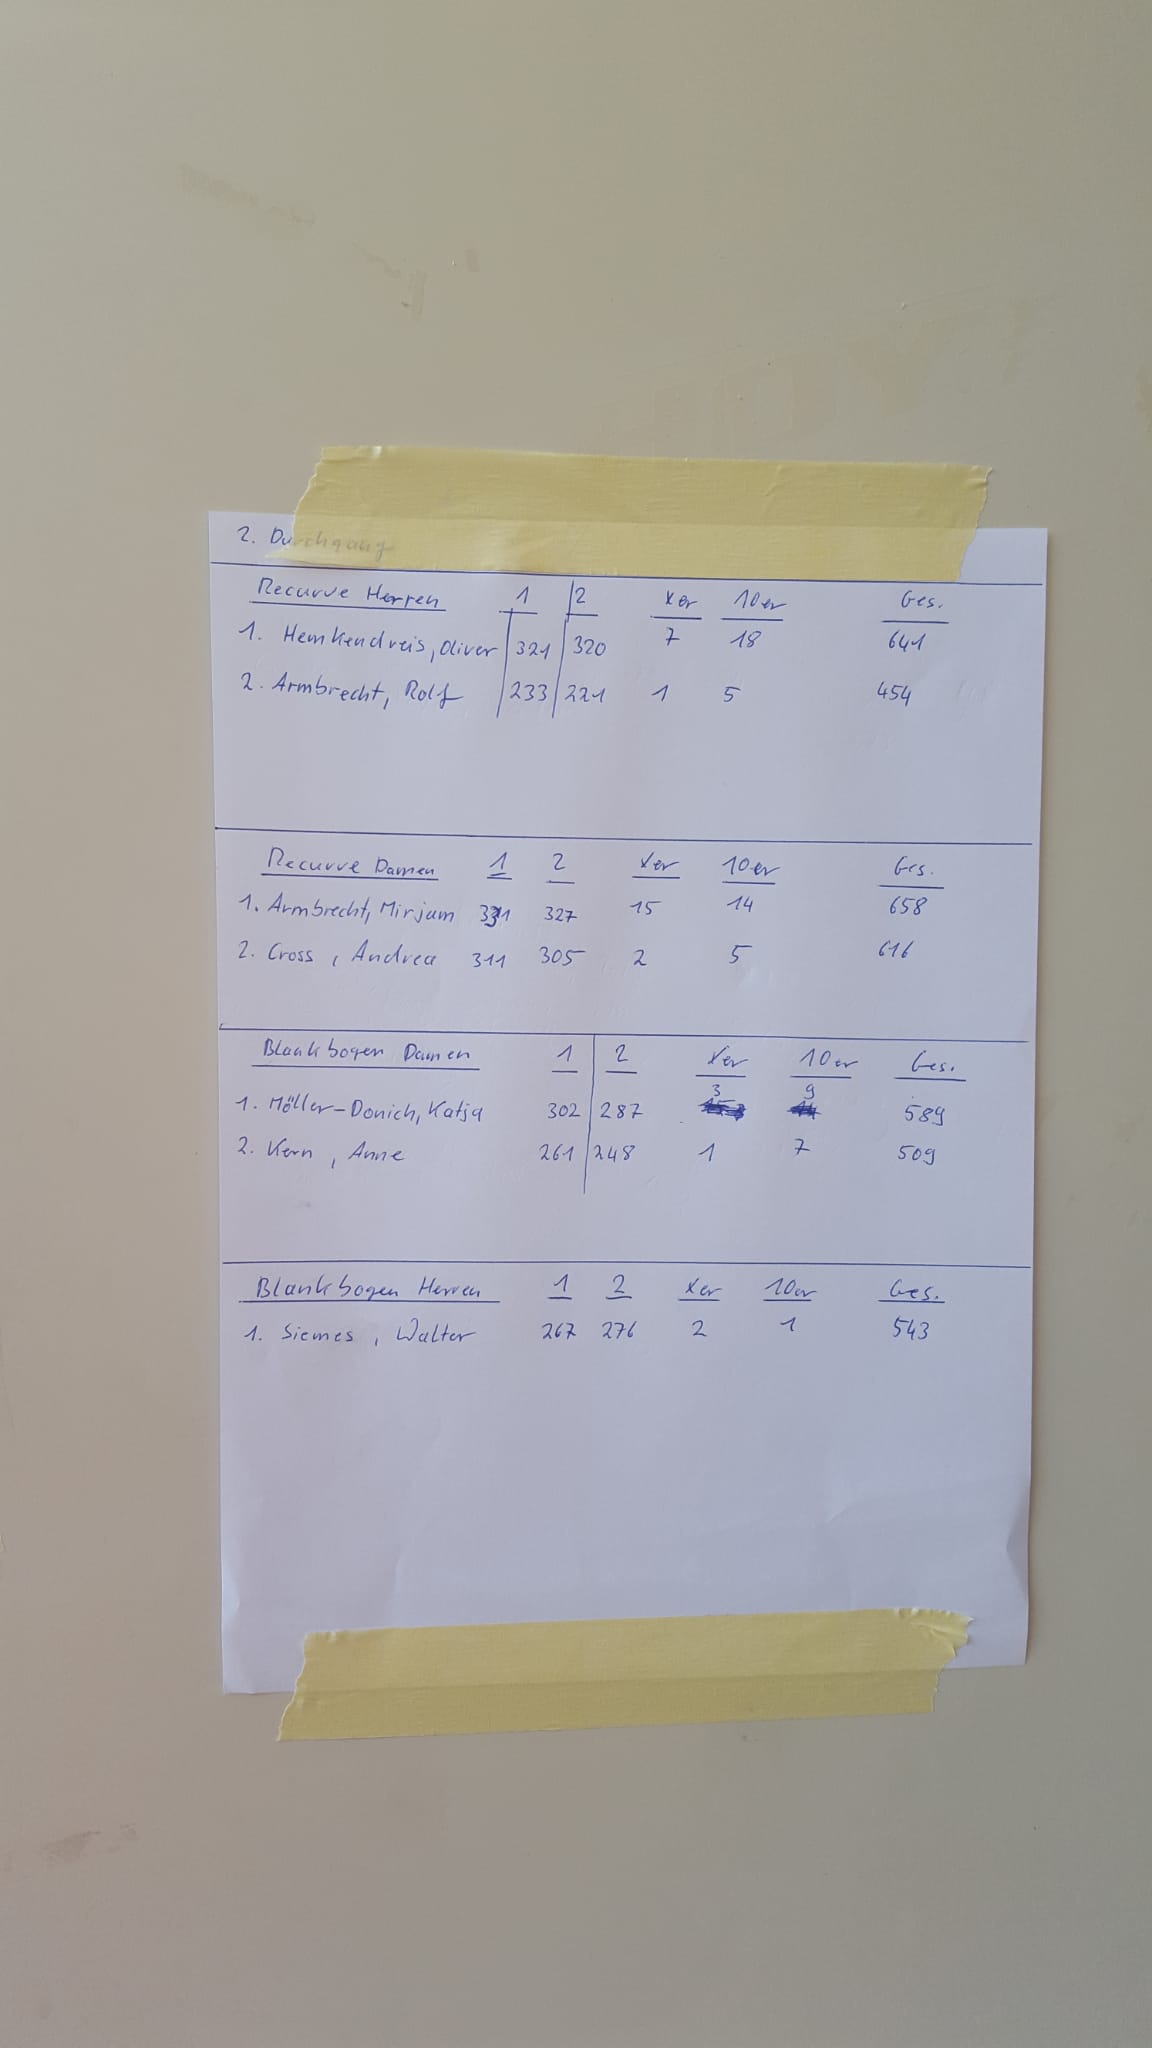 2. Durchgang
Recurve Herren 1 2 Xer 10er Ges.
1. Hemkendreis, Oliver 321 320 7 18 641
2. Armbrecht, Rolf 233 221 1 5 454
Recurve Damen 1 2 Xer 10er Ges.
1. Armbrecht, Mirjam 331 327 15 14 658
2. Cross, Andrea 311 305 2 5 616
Blankbogen Damen 1 2 Xer 10er Ges.
1. Möller-Donich, Katja 302 287 3 9 589
2. Kern, Anne 261 248 1 7 509
Blankbogen Herren 1 2 Xer 10er Ges.
1. Siemes, Walter 267 276 2 1 543